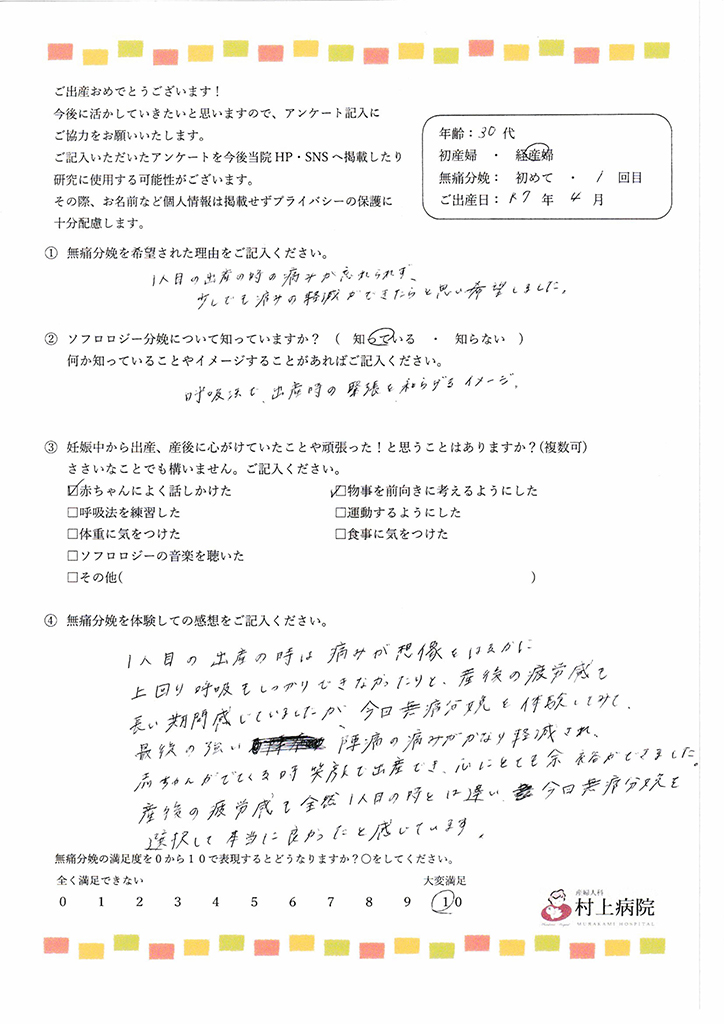 ご出産おめでとうございます！
今後に活かしていきたいと思いますので、アンケート記入に
ご協力をお願いいたします。
ご記入いただいたアンケートを今後当院 HP・SNS へ掲載したり
研究に使用する可能性がございます。
その際、お名前など個人情報は掲載せずプライバシーの保護に
十分配慮します。
年齢：30 代
初産婦 ・ 経産婦
無痛分娩： 初めて ・ 1 回目
ご出産日：R7 年 4 月
① 無痛分娩を希望された理由をご記入ください。
1人目の出産の時の痛みが忘れられず、
少しでも痛みの軽減ができたらと思い希望しました。
② ソフロロジー分娩について知っていますか？ （ 知っている ・ 知らない ）
何か知っていることやイメージすることがあればご記入ください。
呼吸法で、出産時の緊張を和らげるイメージ。
③ 妊娠中から出産、産後に心がけていたことや頑張った！と思うことはありますか？(複数可)
ささいなことでも構いません。ご記入ください。
☑赤ちゃんによく話しかけた ☑物事を前向きに考えるようにした
□呼吸法を練習した □運動するようにした
□体重に気をつけた □食事に気をつけた
□ソフロロジーの音楽を聴いた
□その他( )
④ 無痛分娩を体験しての感想をご記入ください。
1人目の出産の時は痛みが想像をはるかに
上回り呼吸もしっかりできなかったりと、産後の疲労感も
長い期間感じていましたが、今回無痛分娩を体験してみて、
最後の強い 陣痛の痛みがかなり軽減され、
赤ちゃんがでてくる時笑顔で出産でき、心にとても余裕ができました。
産後の疲労感も全然1人目の時とは違い、今回無痛分娩を
選択して本当に良かったと感じています。
無痛分娩の満足度を0から10で表現するとどうなりますか？○をしてください。
全く満足できない 大変満足
0 1 2 3 4 5 6 7 8 9 10
産婦人科
村上病院
MURAKAMI HOSPITAL